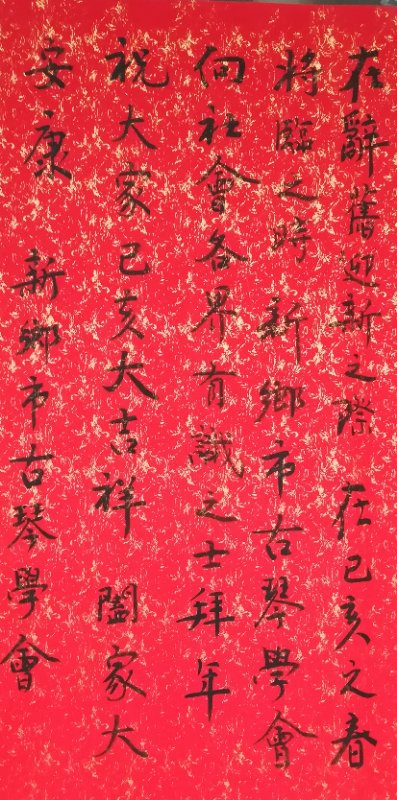 在辭舊迎新之際 在己亥之春
將臨之時 新鄉市古琴學會
向社會各界有識之士拜年
祝大家己亥大吉祥 闔家大
安康 新鄉市古琴學會